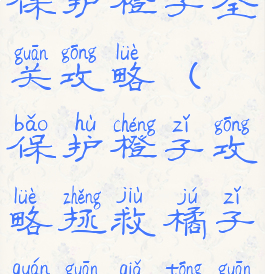 保护橙子全
guān gōng lüè
关攻略(
bǎo hù chéng zǐ gōng
保护橙子攻
lüè zhěng jiù jú zǐ
略拯救橘子
quán guān qiǎ tōng guān